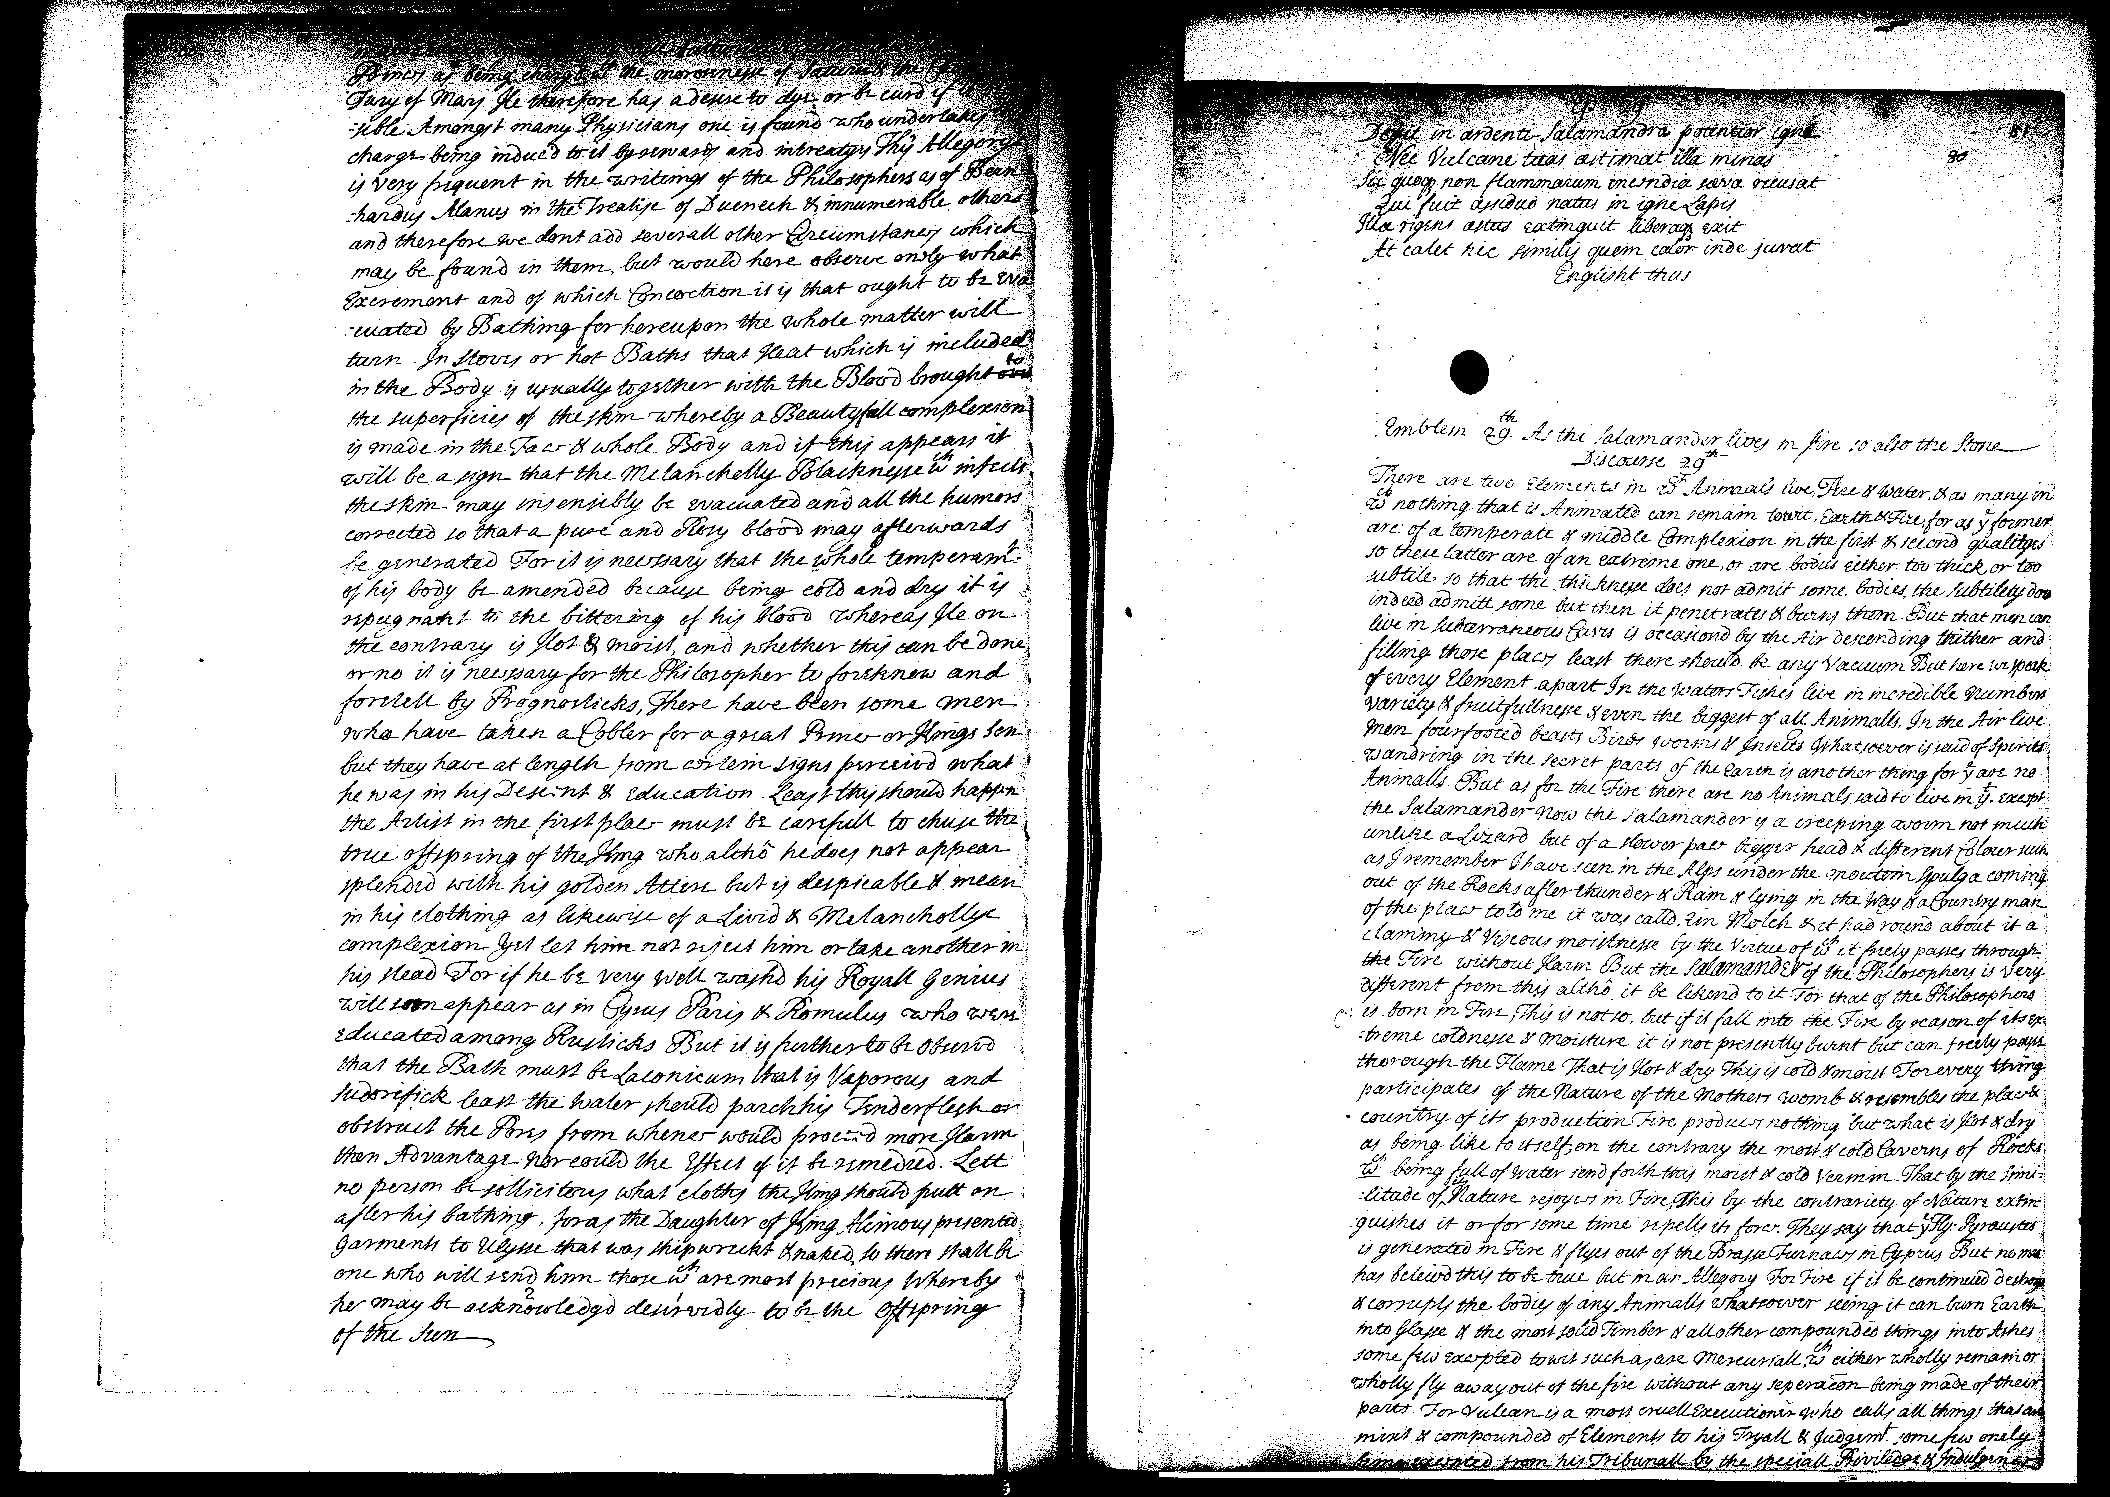 Princes as being charged the morosenesse of Saturn & the
Fury of Mars He therefore has a desire to dye or be curd if
-sible Amongst many Physicians one is found who undertakes
charge being induced to it by rewards and intreatys This Allegory
is very frequent in the writings of the Philosophers as of Bern
-hardus Alanus in the Treatise of Duenech & innumerable others
and therefore we dont add severall other Circumstances which
may be found in them, but would here observe onely what
Excrement and of which Concoction it is that ought to be Eva
-cuated by Bathing for hereupon the whole matter will
turn In stoves or hot Baths that Heat which is included
in the Body is usually together with the Blood brought to
the superficies of the skin whereby a Beautyfull complexion
is made in the Face & whole Body and if this appears it
will be a sign that the Melancholly Blacknesse wch infects
the skin may insensibly be evacuated and all the humors
corrected so that a pure and Rosy blood may afterwards
be generated For it is necessary that the whole temperamt:
of his body be amended because being cold and dry it is
repugnant to the bittering of his blood whereas He on
the contrary is Hot & moist, and whether this can be done
or no it is necessary for the Philosopher to foreknow and
foretell by Prognosticks, There have been some men
who have taken a Cobler for a great Prince or Kings son
but they have at length from certein signs perceivd what
he was in his Descent & Education Least this should happen
the Artist in the first place must be carefull to chuse the
true offspring of the King who altho he does not appear
splendid with his golden Attire but is despicable & mean
in his clothing as likewise of a Livid & Melanchollye
complexion Yet let him not reject him or take another in
his stead For if he be very well washd his Royall Genius
will soon appear as in Cyrus Paris & Romulus who were
Educated among Rusticks But it is further to be observd
that the Bath must be Laconicum that is Vaporous and
Sudorifick least the water should parch his Tender flesh or
obstruct the Pores from whence would proceed more Harm
then Advantage nor could the Effect of it be remedied. Lett
no person be sollicitous what cloths the King should putt on
after his bathing, for as the Daughter of King Alcinous presented
Garments to Ulysse that was shipwreckt & naked, so there shall be
one who will send him those wch are most precious Whereby
he may be acknowledgd deservedly to be the Offspring
of the Sun
81
Degit in ardenti Salamandra potentior igne
Nec Vulcane tuas æstimat illa minas
80
Sic quoq non flammarum incendia sæva recusat
Qui fuit assiduo natus in igne Lapis
Illa rigens æstus extinguit liberaq exit
At calet hic similis quem calor inde juvat
Englisht thus
Emblem 29th As the Salamander lives in fire so also the Stone
Discourse 29th
There are two Elements in wch Animals live, Aire & Water, & as many in
wch nothing that is Animated can remain towit, Earth & Fire, for as ye former
are of a temperate & middle Complexion in the first & second qualityes
so these latter are of an extreme one, or are bodies either too thick or too
subtile so that the thicknesse does not admit some bodies, the subtilety does
indeed admitt some but then it penetrates & burns them But that men can
live in subterraneous Caves is occasiond by the Air descending thither and
filling those places least there should be any Vacuum But here we speak
of every Element apart In the waters Fishes live in incredible number
variety & fruitfullnesse & even the biggest of all Animalls. In the Air live
men fourfooted beasts Birds worms & Insects Whatsoever is said of Spirits
wandring in the secret parts of the Earth is another thing for yy are no
Animalls But as for the Fire there are no Animals said to live in yt. except
the Salamander now the Salamander is a creeping worm not much
unlike a Lizard but of a slower pace bigger head & different Colour such
as I remember I have seen in the Alps under the mountain Spulga coming
out of the Rocks after thunder & Rain & lying in the Way & a Country man
of the place told me it was calld Ein Molch & it had round about it a
clammy & Viscous moistnesse by the Virtue of wch it freely passes through
the Fire without Harm But the Salamander of the Philosophers is very
different from this altho it be likend to it For that of the Philosophers
is born in Fire, This is not so, but if it fall into the Fire by reason of its ex
-treme coldnesse & moisture it is not presently burnt but can freely passe
thorough the Flame That is Hot & dry This is cold & moist For every thing
participates of the Nature of the Mothers womb & resembles the place &
country of its production Fire produces nothing but what is Hot & dry
as being like to itself, on the contrary the moist & cold Caverns of Rocks
wch being full of water send forth this moist & cold Vermin. That by the Simi-
-litude of Nature rejoyces in Fire, This by the contrariety of Nature extin
guishes it or for some time repells its force. They say that ye Fly Pyraustes
is generated in Fire & flyes out of the Brasse Furnaces in Cyprus But no man
has beleivd this to be true but in an Allegory For Fire if it be continued destroys
& corrupts the bodies of any Animalls whatsoever seeing it can burn Earth
into Glasse & the most solid Timber & all other compounded things into Ashes
some few excepted towit such as are Mercuriall, wch either wholly remain or
wholly fly away out of the fire without any seperacon being made of their
parts For Vulcan is a most cruell Executioner who calls all things that are
mixt & compounded of Elements to his Tryall & Judgemt some few onely
being excepted from his Tribunall by the speciall Priviledge & Indulgence